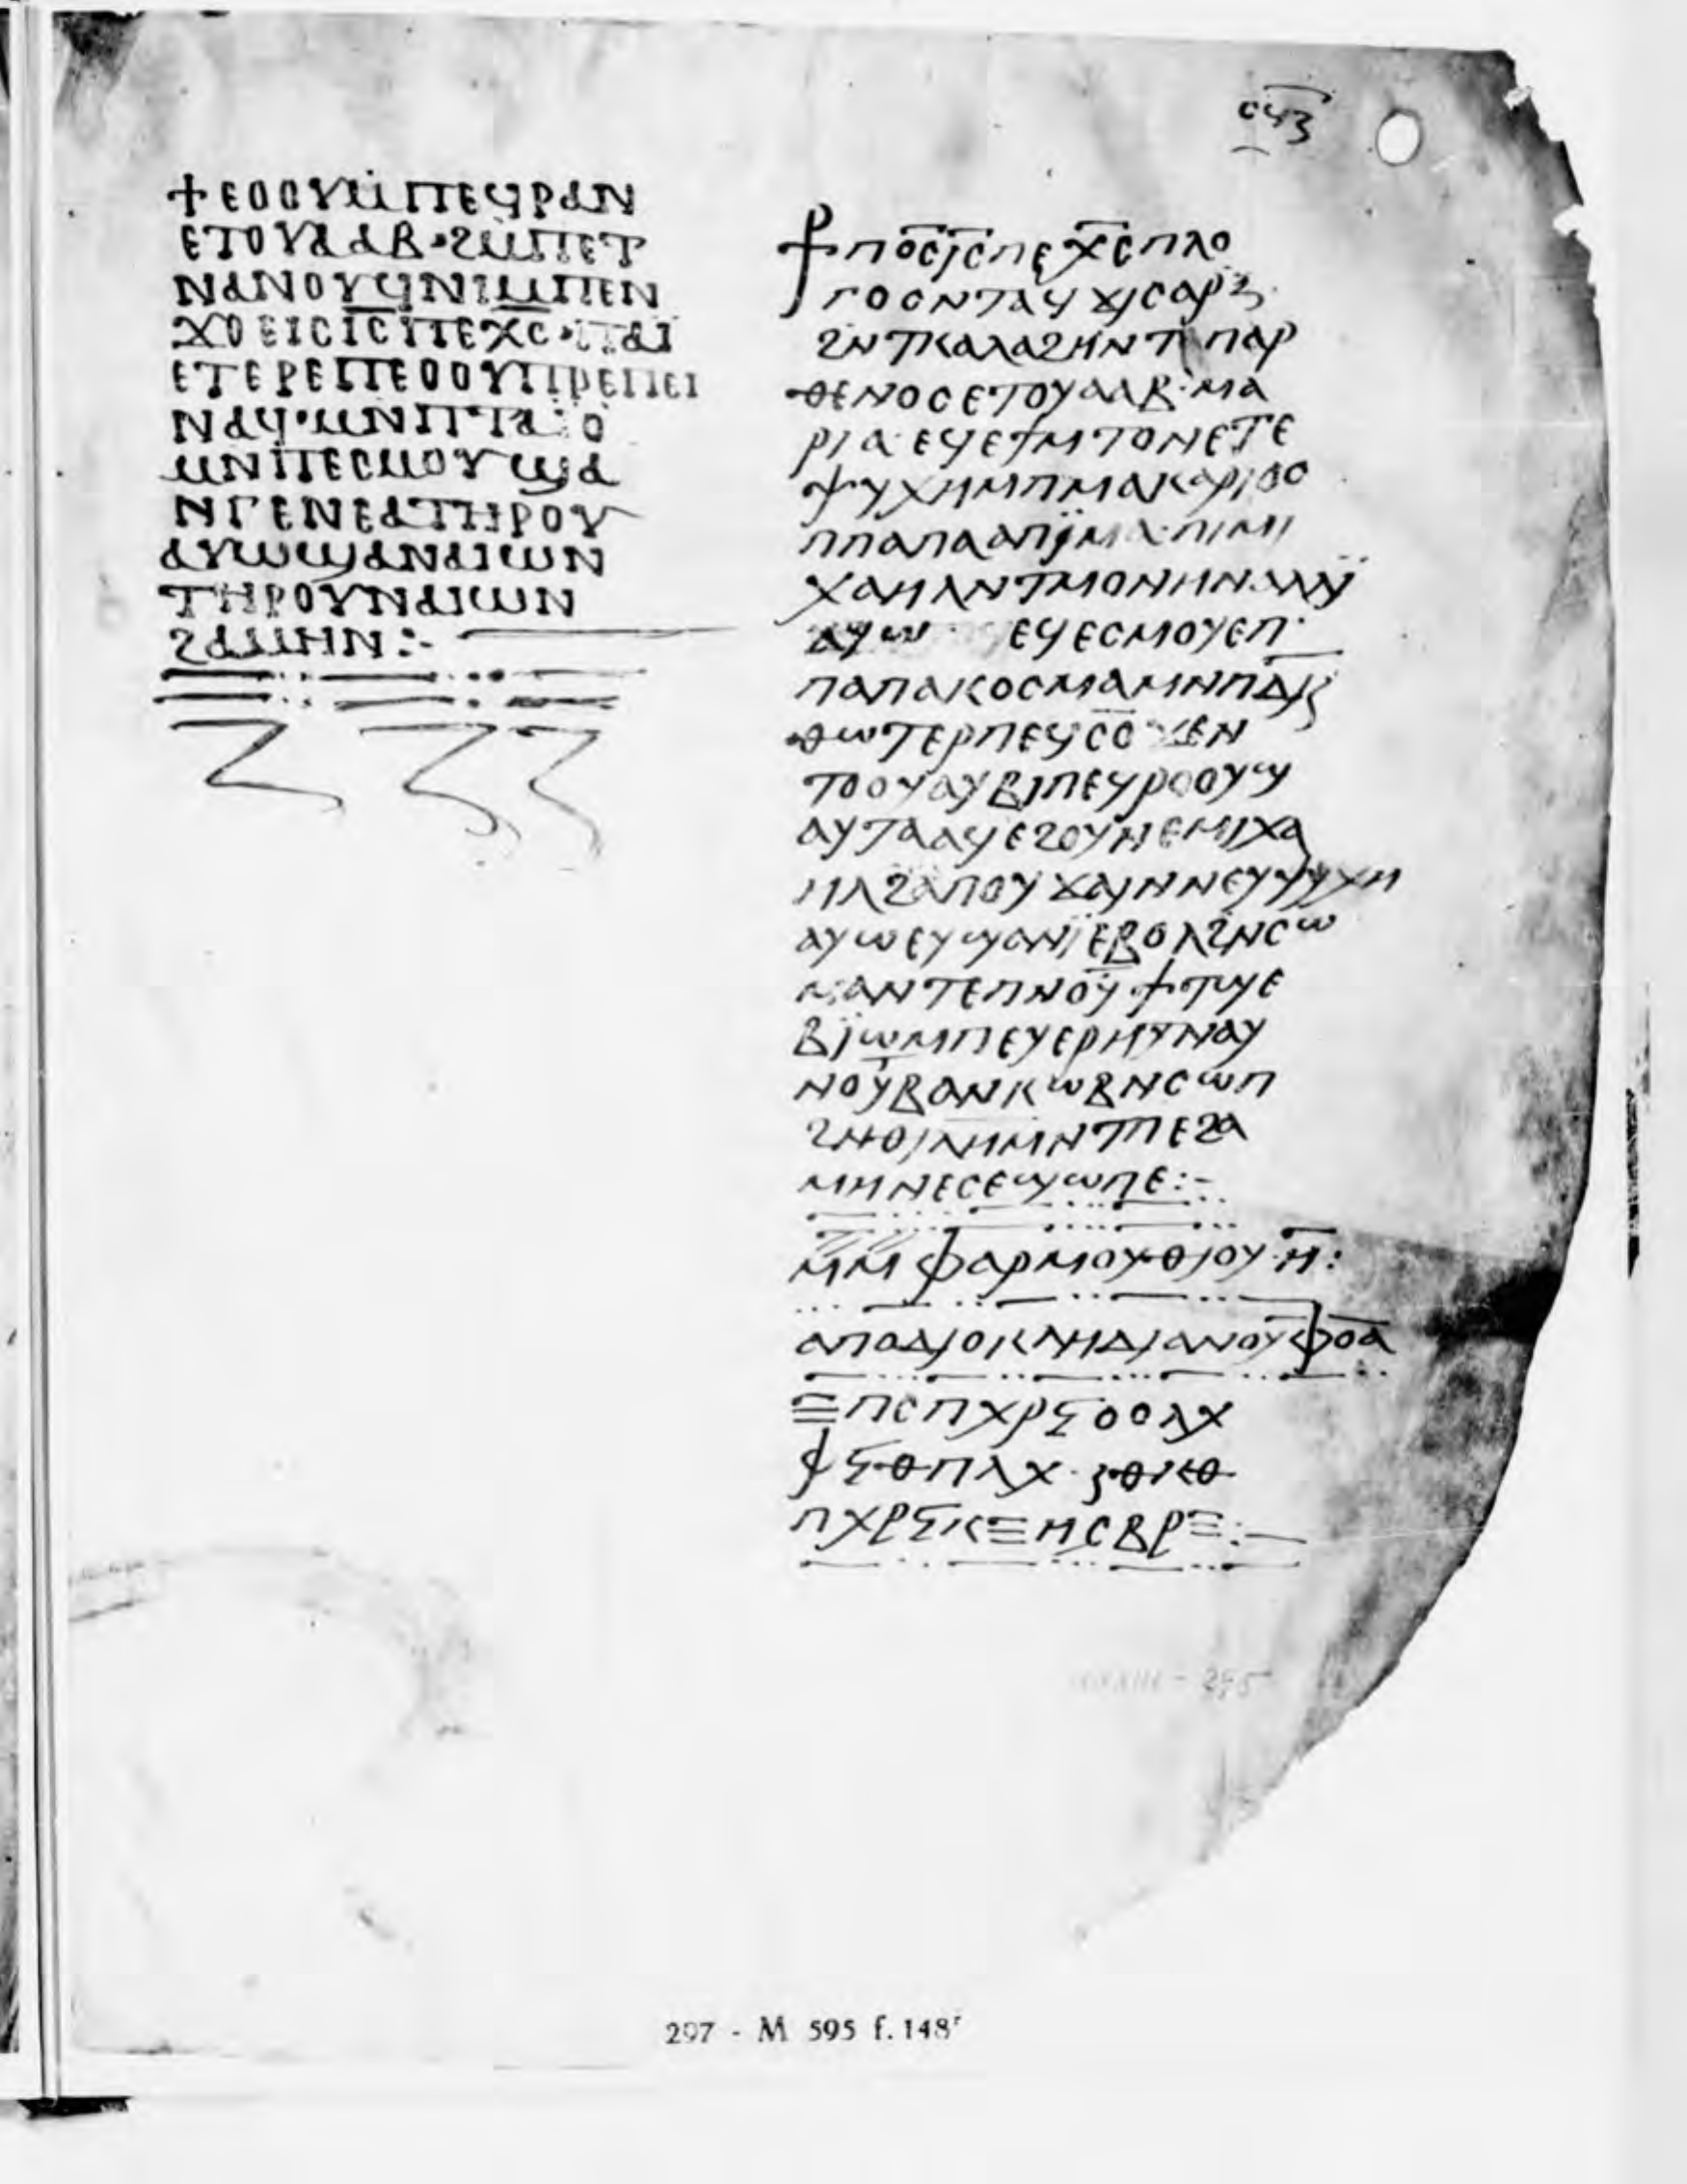 ϥϥⲍ
ϯⲉⲟⲟⲩⲙⲡⲉϥⲣⲁⲛ
ⲉⲧⲟⲩⲁⲁⲃ·ϩⲙⲡⲉⲧ
ⲛⲁⲛⲟⲩϥⲛⲓⲙⲙⲡⲉⲛ
ϫⲟⲉⲓⲥⲓ̅ⲥ̅ⲡⲉⲭ̅ⲥ̅·ⲡⲁⲓ
ⲉⲧⲉⲣⲉⲡⲉⲟⲟⲩⲡⲣⲉⲡⲉⲓ
ⲛⲁϥ·ⲙⲛⲡⲧⲁⲓⲟ
ⲙⲛⲡⲉⲥⲙⲟⲩϣⲁ
ⲛⲅⲉⲛⲉⲁⲧⲏⲣⲟⲩ
ⲁⲩⲱϣⲁⲛⲁⲓⲱⲛ
ⲧⲏⲣⲟⲩⲛⲁⲓⲱⲛ
ϩⲁⲙⲏⲛ:-
⳨ⲡⲟ̅ⲥ̅ⲓ̅ⲥ̅ⲡⲉⲭ̅ⲥ̅ⲡⲗⲟ
ⲅⲟⲥⲛⲧⲁϥϫⲓⲥⲁⲣⲝ
ϩⲛⲧⲕⲁⲗⲁϩⲏⲛⲧⲡⲁⲣ
ⲑⲉⲛⲟⲥⲉⲧⲟⲩⲁⲁⲃ·ⲙⲁ
ⲣⲓⲁ·ⲉϥⲉϯⲙⲧⲟⲛⲉⲧⲉ
ⲯⲩⲭⲏⲙⲡⲙⲁⲕⲁⲣⲓⲟⲥ
ⲡⲡⲁⲡⲁⲁⲡⲓⲙⲁ·ⲡⲓⲙⲓ
ⲭⲁⲏⲗⲛⲧⲙⲟⲛⲏ
ⲁⲩⲱ ⲉϥⲉⲥⲙⲟⲩⲉⲡ
ⲡⲁⲡⲁⲕⲟⲥⲙⲁⲙⲛⲡⲇⲓⲕ
ⲑⲱⲧⲉⲣⲡⲉϥⲥⲟ
ⲧⲟⲟⲩⲁⲩⲃⲓⲡⲉϥⲣⲟⲟⲩϣ
ⲁⲩⲧⲁⲁϥⲉϩⲟⲩⲛⲉⲙⲓⲭⲁ
ⲏⲗϩⲁⲡⲟⲩϫⲁⲓⲛⲛⲉⲩⲯⲩⲭⲏ
ⲁⲩⲱⲉⲩϣⲁⲛⲓⲉⲃⲟⲗϩⲛⲥⲱ
ⲙⲁⲛⲧⲉⲡⲛⲟⲩϯⲧϣⲉ
ⲃⲓⲱⲙⲡⲉⲩⲉⲣⲏⲧⲛⲁⲩ
ⲛⲟⲩⲃⲁⲛⲕⲱⲃⲛⲥⲱⲡ
ϩⲛⲑⲓⲗⲏⲙⲛⲧⲡⲉϩⲁ
ⲙⲏⲛⲉⲥⲉϣⲱⲡⲉ:-
ⲙⲙⲫⲁⲣⲙⲟⲩⲑⲓⲟⲩ·ⲏ̅:
ⲁⲡⲟⲇⲓⲟⲕⲗⲏⲇⲓⲁⲛⲟⲩⲫⲟⲁ
ⲡⲭⲣⲋⲕ